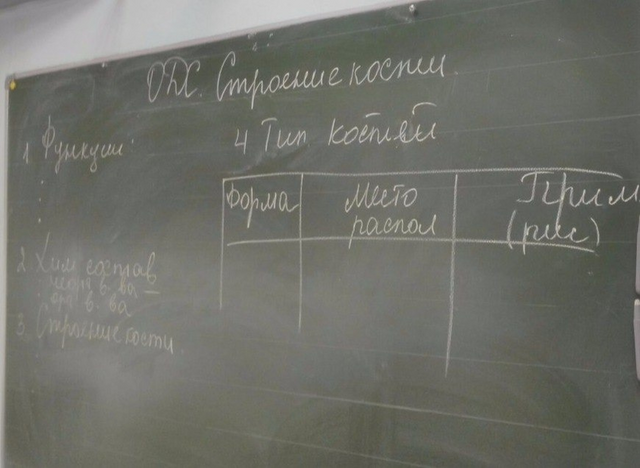 ОДС. Строение кости.
1 Функции:
2 Хим состав
неорг в-ва –
орг в-ва
3. Строение кости.
4 Тип костей
Форма Место распол Прим (рис)